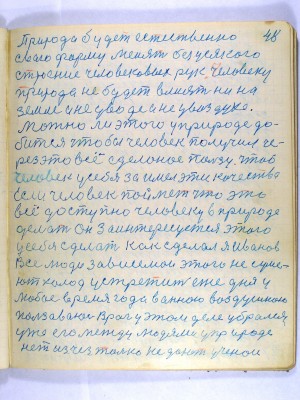 48
Природа будет естественно
свою форму менять без всякого
строение человековых рук, человеку
природа не будет влиять ни на
земле и не у воде и не у воздухе.
Можно ли этого у природе до-
бится чтобы человек получил че-
рез это всё сделоное ползу. чтоб
человек у себя за имел эти качества
Если человек поймет что это
всё доступно человеку в природе
делат он заинтересуется этого
у себя сделат как сделал я Иванов
Все люди зависемои этого не суще-
ют холод устретит еже дня у
любое время года банною воздушною
ползавание враг у этом деле убрался
уже его между людями у природе
нет изчез толко не дают ученои